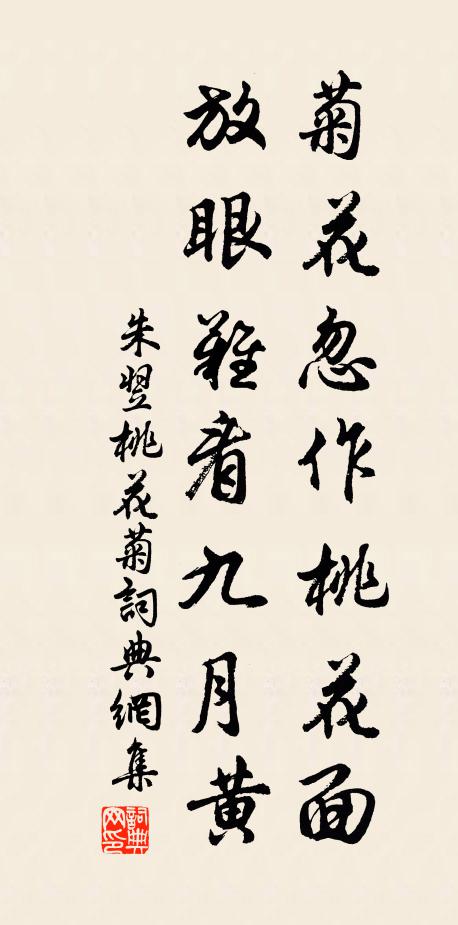 菊花忽作桃花面
放眼難看九月黄
朱翌桃花菊詞典網集
詞典网印